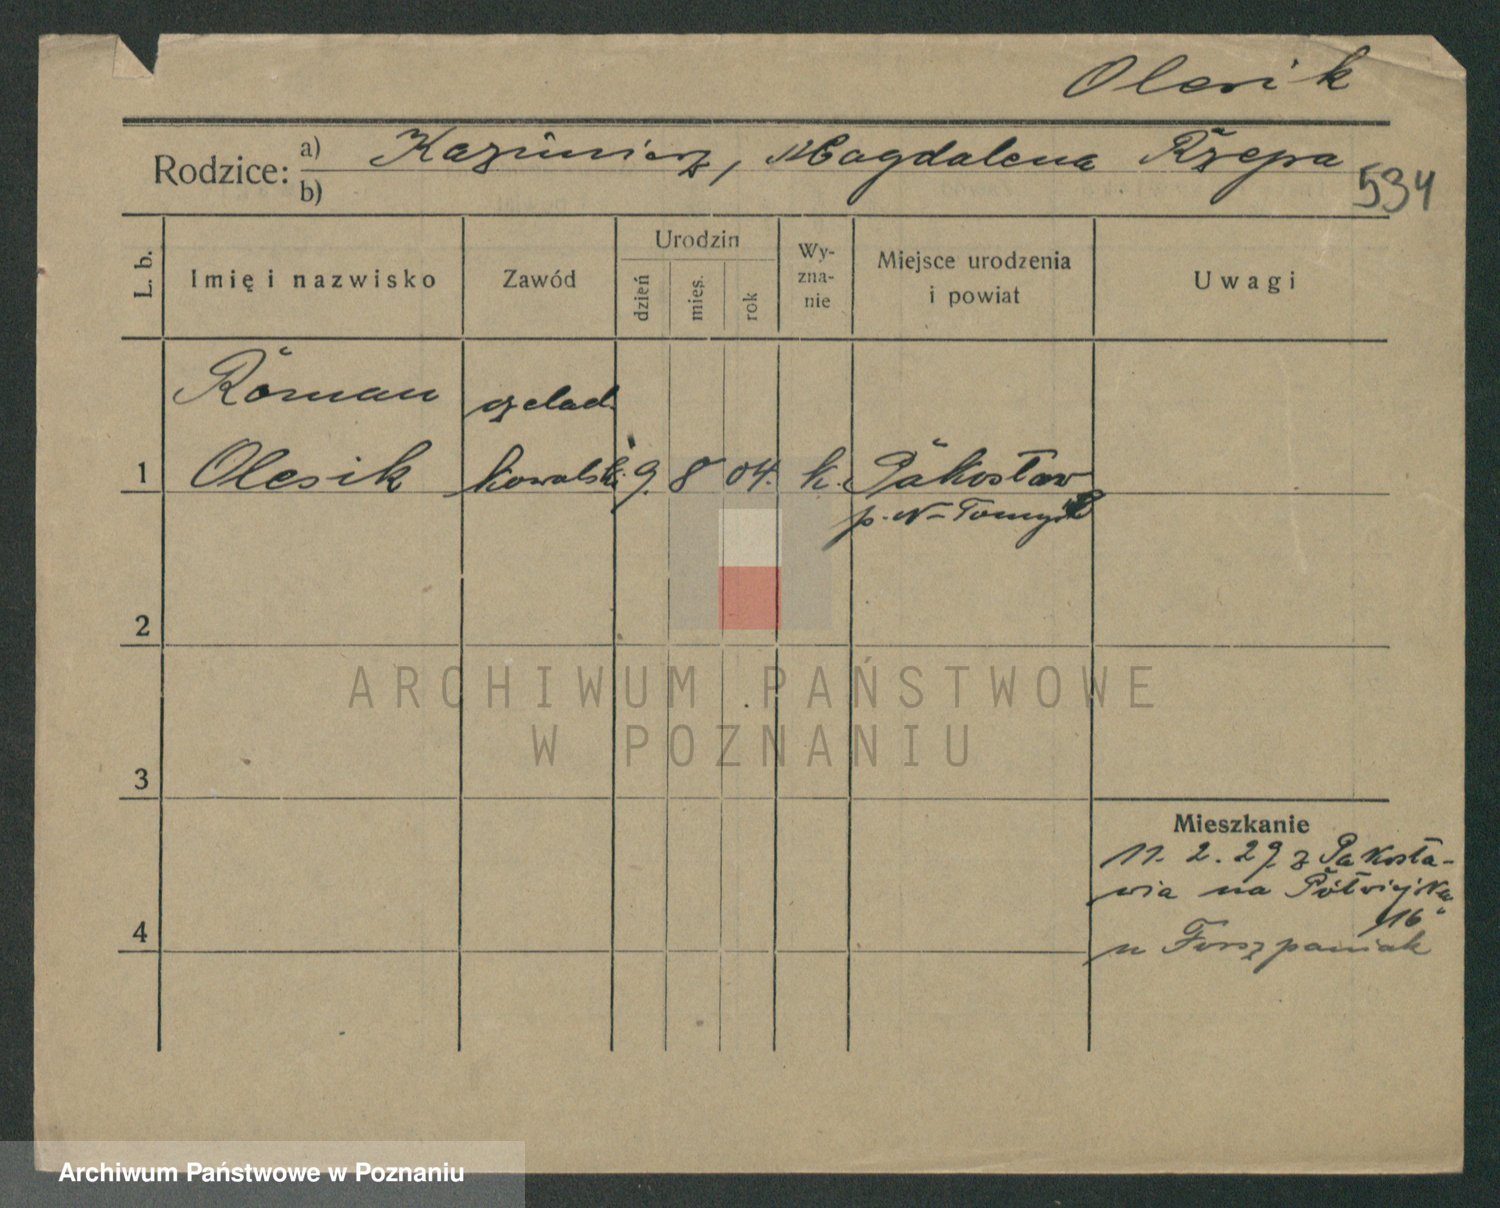 Olesik
Rodzice: a) Kazimierz, Magdalena Rzepa
b)
534
L. b.
Imię i nazwisko
Zawód
Urodzin
dzień
mies.
rok
Wy-
zna-
nie
Miejsce urodzenia
i powiat
Uwagi
Roman czelad.
1 Olesik kowalski 9. 8 04. k. Pakosław
p. N-Tomyśl
2
ARCHIWUM PAŃSTWOWE
W POZNANIU
3
Mieszkanie
11. 2. 29 z Pakosła-
wia na Półwiejska
16
4
u Forszpaniak
Archiwum Państwowe w Poznaniu